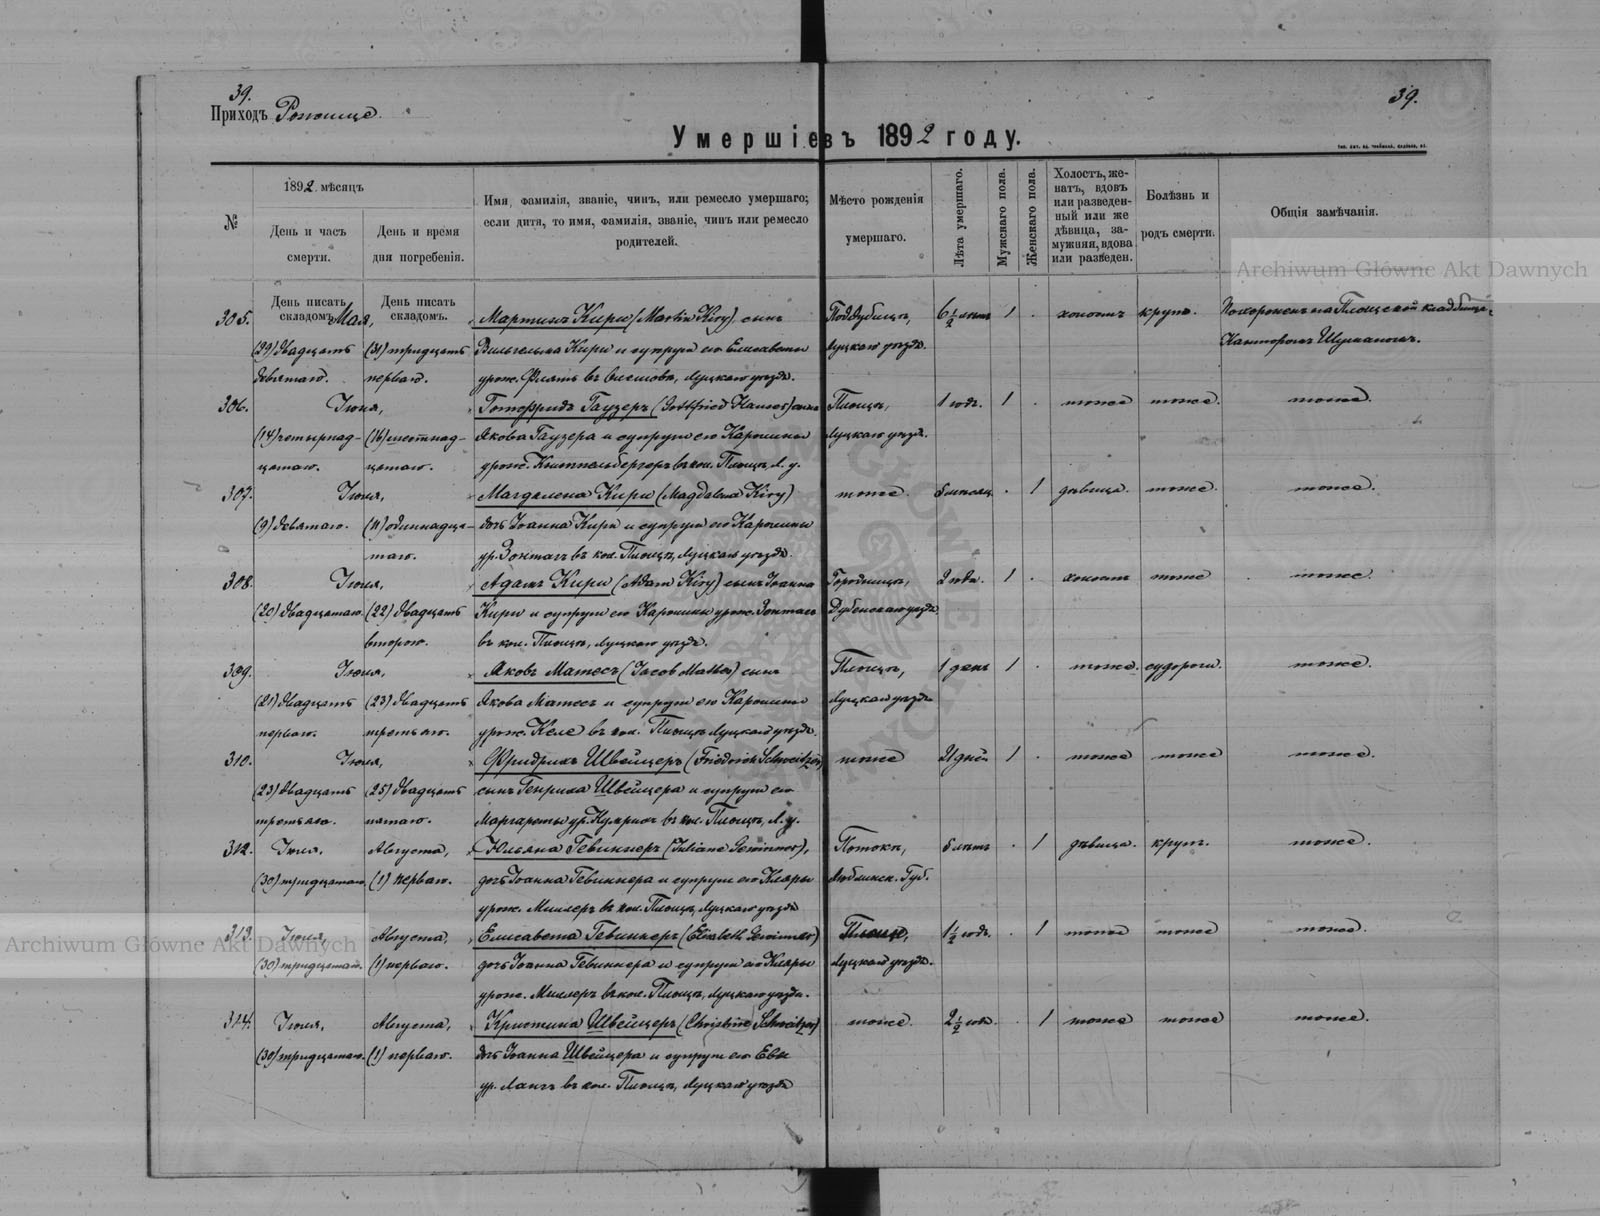 39.
39.
Приходъ Рожище.
Умершіевъ 1892 году.
№
1892 мѣсяцъ
День и часъ смерти.
День и время дня погребенія.
Имя, фамилія, званіе, чинъ, или ремесло умершаго;
если дитя, то имя, фамилія, званіе, чинъ или ремесло
родителей.
Мѣсто рожденія
умершаго.
Лѣта умершаго.
Мужскаго пола.
Женскаго пола.
Холостъ, же-
натъ, вдовъ
или разведен-
ный или же
дѣвица, за-
мужняя, вдова
или разведен.
Болѣзнь и
родъ смерти.
Общія замѣчанія.
День писать
складомъ
День писать
складомъ.
305. Мая, Мартинъ Кири (Martin Kiry) сынъ Поддубицы, 6½ лѣтъ 1 . холостъ крупъ. Похороненъ на Площекой кладбищѣ
(29) двадцать (31) тридцать Вильгельма Кири и супруги его Елисаветы Луцкаго уѣзда. Канторомъ
девятаго. перваго. урож. Флятъ въ Олешковк, Луцкаго уѣзда.
306. Іюня, Готфридъ Гаузеръ (Gottfried Hauser) сынъ Площъ, 1 годъ. 1 . тоже тоже. тоже.
(14) четырнад- (16) шестнад- Якова Гаузера и супруги его Каролины Луцкаго уѣзда.
цатаго. цатаго. урож. въ кол. Площъ, Л. у.
307. Іюня, Магдалена Кири (Magdalena Kiry) тоже. . 1 дѣвица. тоже. тоже.
(9) девятаго. (11) одиннадца- дочь Іоанна Кири и супруги его Каролины
таго. ур. Зонтагъ въ кол. Площъ, Луцкаго уѣзда.
308. Іюня, Адамъ Кири (Adam Kiry) сынъ Іоанна Городницы, 2 года. 1 . холостъ тоже тоже.
(20) двадцатаго. (22) двадцать Кири и супруги его Каролины урож. Зонтагъ Дубенскаго уѣзда
второго. въ кол. Площъ, Луцкаго уѣзда.
309. Іюня, Яковъ Матесъ (Jacob Mathes) сынъ Площъ, 1 день 1 . тоже. судороги. тоже.
(21) двадцать (23) двадцать Якова Матесъ и супруги его Каролины Луцкаго уѣзда
перваго. третьяго. урож. Келе въ кол. Площъ Луцкаго уѣзда.
310. Іюня, Фридрихъ Швейцеръ (Friedrich Schweitzer) тоже 21 дней 1 . тоже тоже тоже.
(23) двадцать (25) двадцать сынъ Генриха Швейцера и супруги его
третьяго. пятаго. Маргареты ур. въ кол. Площъ, Л. у.
312. Іюля, Августа, Юльяна Гевиннеръ (Juliane Gewinner), Потокъ, 5 лѣтъ . 1 дѣвица. крупъ. тоже.
(30) тридцатаго. (1) перваго. дочь Іоанна Гевиннера и супруги его Клары Люблинск. Губ.
урож. Миллеръ въ кол. Площъ, Луцкаго уѣзда
313. Іюля, Августа, Елисавета Гевиннеръ (Elisabeth Gewinner) Площъ, 1½ годъ. . 1 тоже тоже тоже.
(30) тридцатаго. (1) перваго. дочь Іоанна Гевиннера и супруги его Клары Луцкаго уѣзда.
урож. Миллеръ въ кол. Площъ, Луцкаго уѣзда.
314. Іюля, Августа, Кристина Швейцеръ (Christine Schweitzer) тоже. 2½ года. . 1 тоже тоже тоже.
(30) тридцатаго. (1) перваго. дочь Іоанна Швейцера и супруги его Евы
ур. Лангъ въ кол. Площъ, Луцкаго уѣзда
Archiwum Główne Akt Dawnych
Archiwum Główne Akt Dawnych